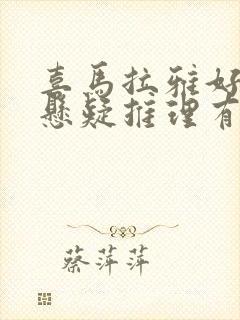 喜马拉雅好
悬疑推理有
蔡萍萍